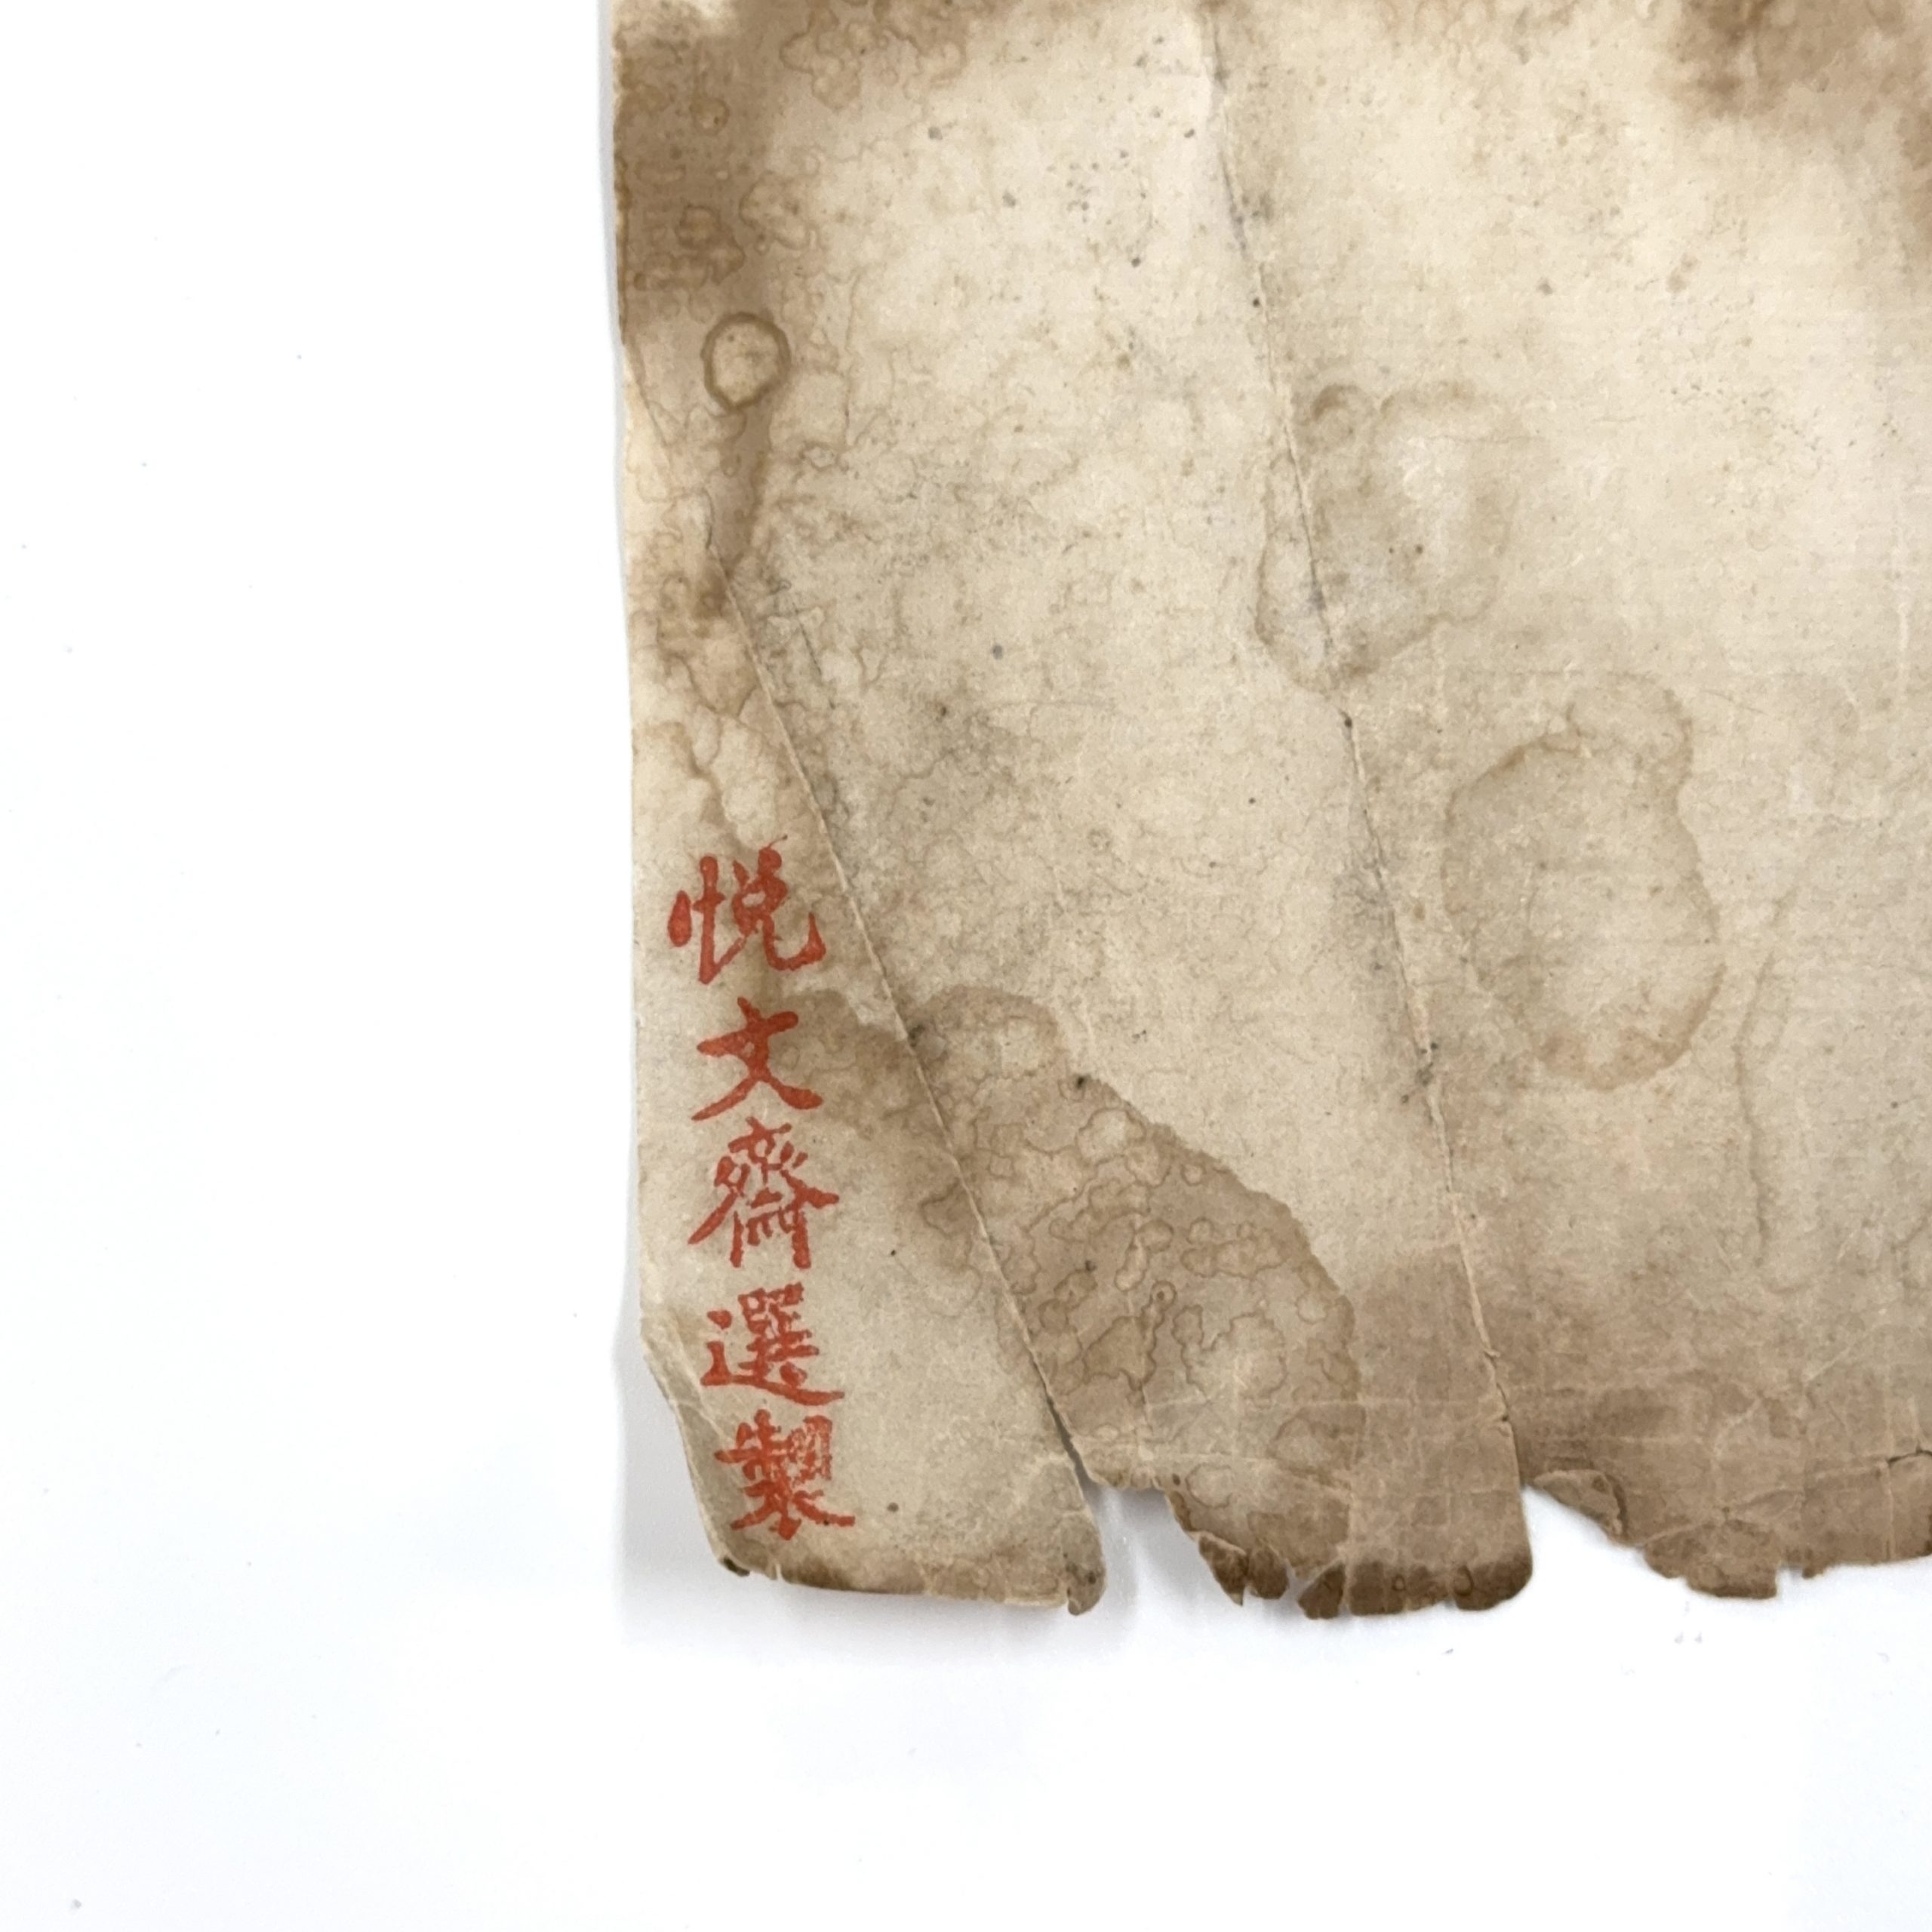 悦文齋選製